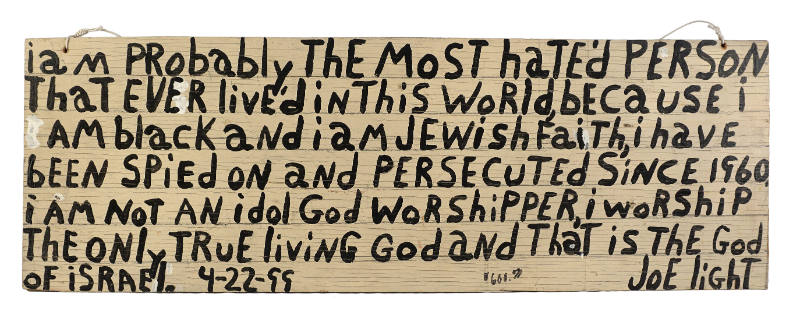 iam PRobably ThE MoST haTE'd PERSoN
ThaT EVER livE'd iN This WoRld, bECausE i
AM black aNd i aM JEWish FaiTh, i havE
bEEN SPiEd oN aNd PERSECUTEd SiNCE 1960.
i AM NoT AN idol God WoRShiPPER, i woRShiP
ThE oNly TRUE liviNG God aNd ThaT iS ThE God
oF iSRAEl. 4-22-99 JoE lighT